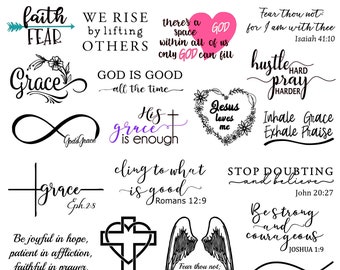 faith
FEAR
WE RISE
by lifting
OTHERS
there's a
space GOD
within all of us
only GOD can fill
Fear thou not:
for I am with thee
Isaiah 41:10
Grace
GOD IS GOOD
all the time
hustle HARD
pray
HARDER
GodsGrace
His
grace
is enough
Jesus
loves
me
Inhale Grace
Exhale Praise
grace
Eph.2:8
cling to what
is good
Romans 12:9
STOP DOUBTING
and believe
John 20:27
Be strong
and
courageous
JOSHUA 1:9
Be joyful in hope,
patient in affliction,
faithful in prayer.
Fear thou not;